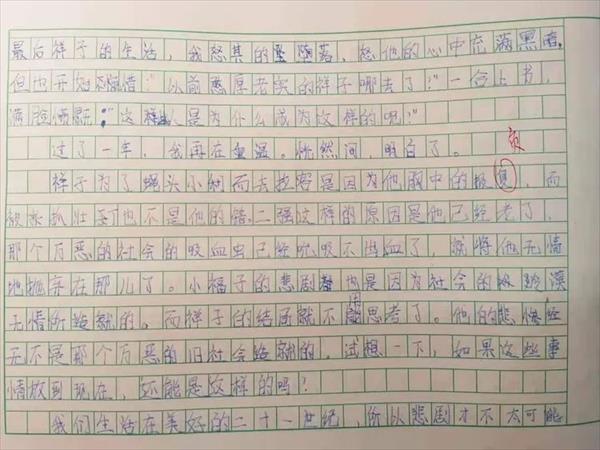 最后祥子的生活，我怒其的堕落，怒他的心中充满黑暗。
但也开始惋惜："以前憨厚老实的祥子哪去了？"一合上书，
满脸愤慨："这祥子，是为什么成为这样的呢？"
过了一年，我再在重温。恍然间，明白了。
负
祥子为了蝇头小利而去拉客是因为他胸中的报息，而
被抓壮丁也不是他的错。二强这样的原因是他已经老了，
那个万恶的社会的吸血虫已经吮吸不出血了，就将他无情
地抛弃在那儿了。小福子的悲剧也是因为社会的极 漠
无情所造就的。而祥子的结局就不用思考了。他的悲惨
无不是那个万恶的旧社会造就的。试想一下，如果这些事
情放到现在，还能是这样的吗？
我们生活在美好的二十一世纪，所以悲剧才不太可能